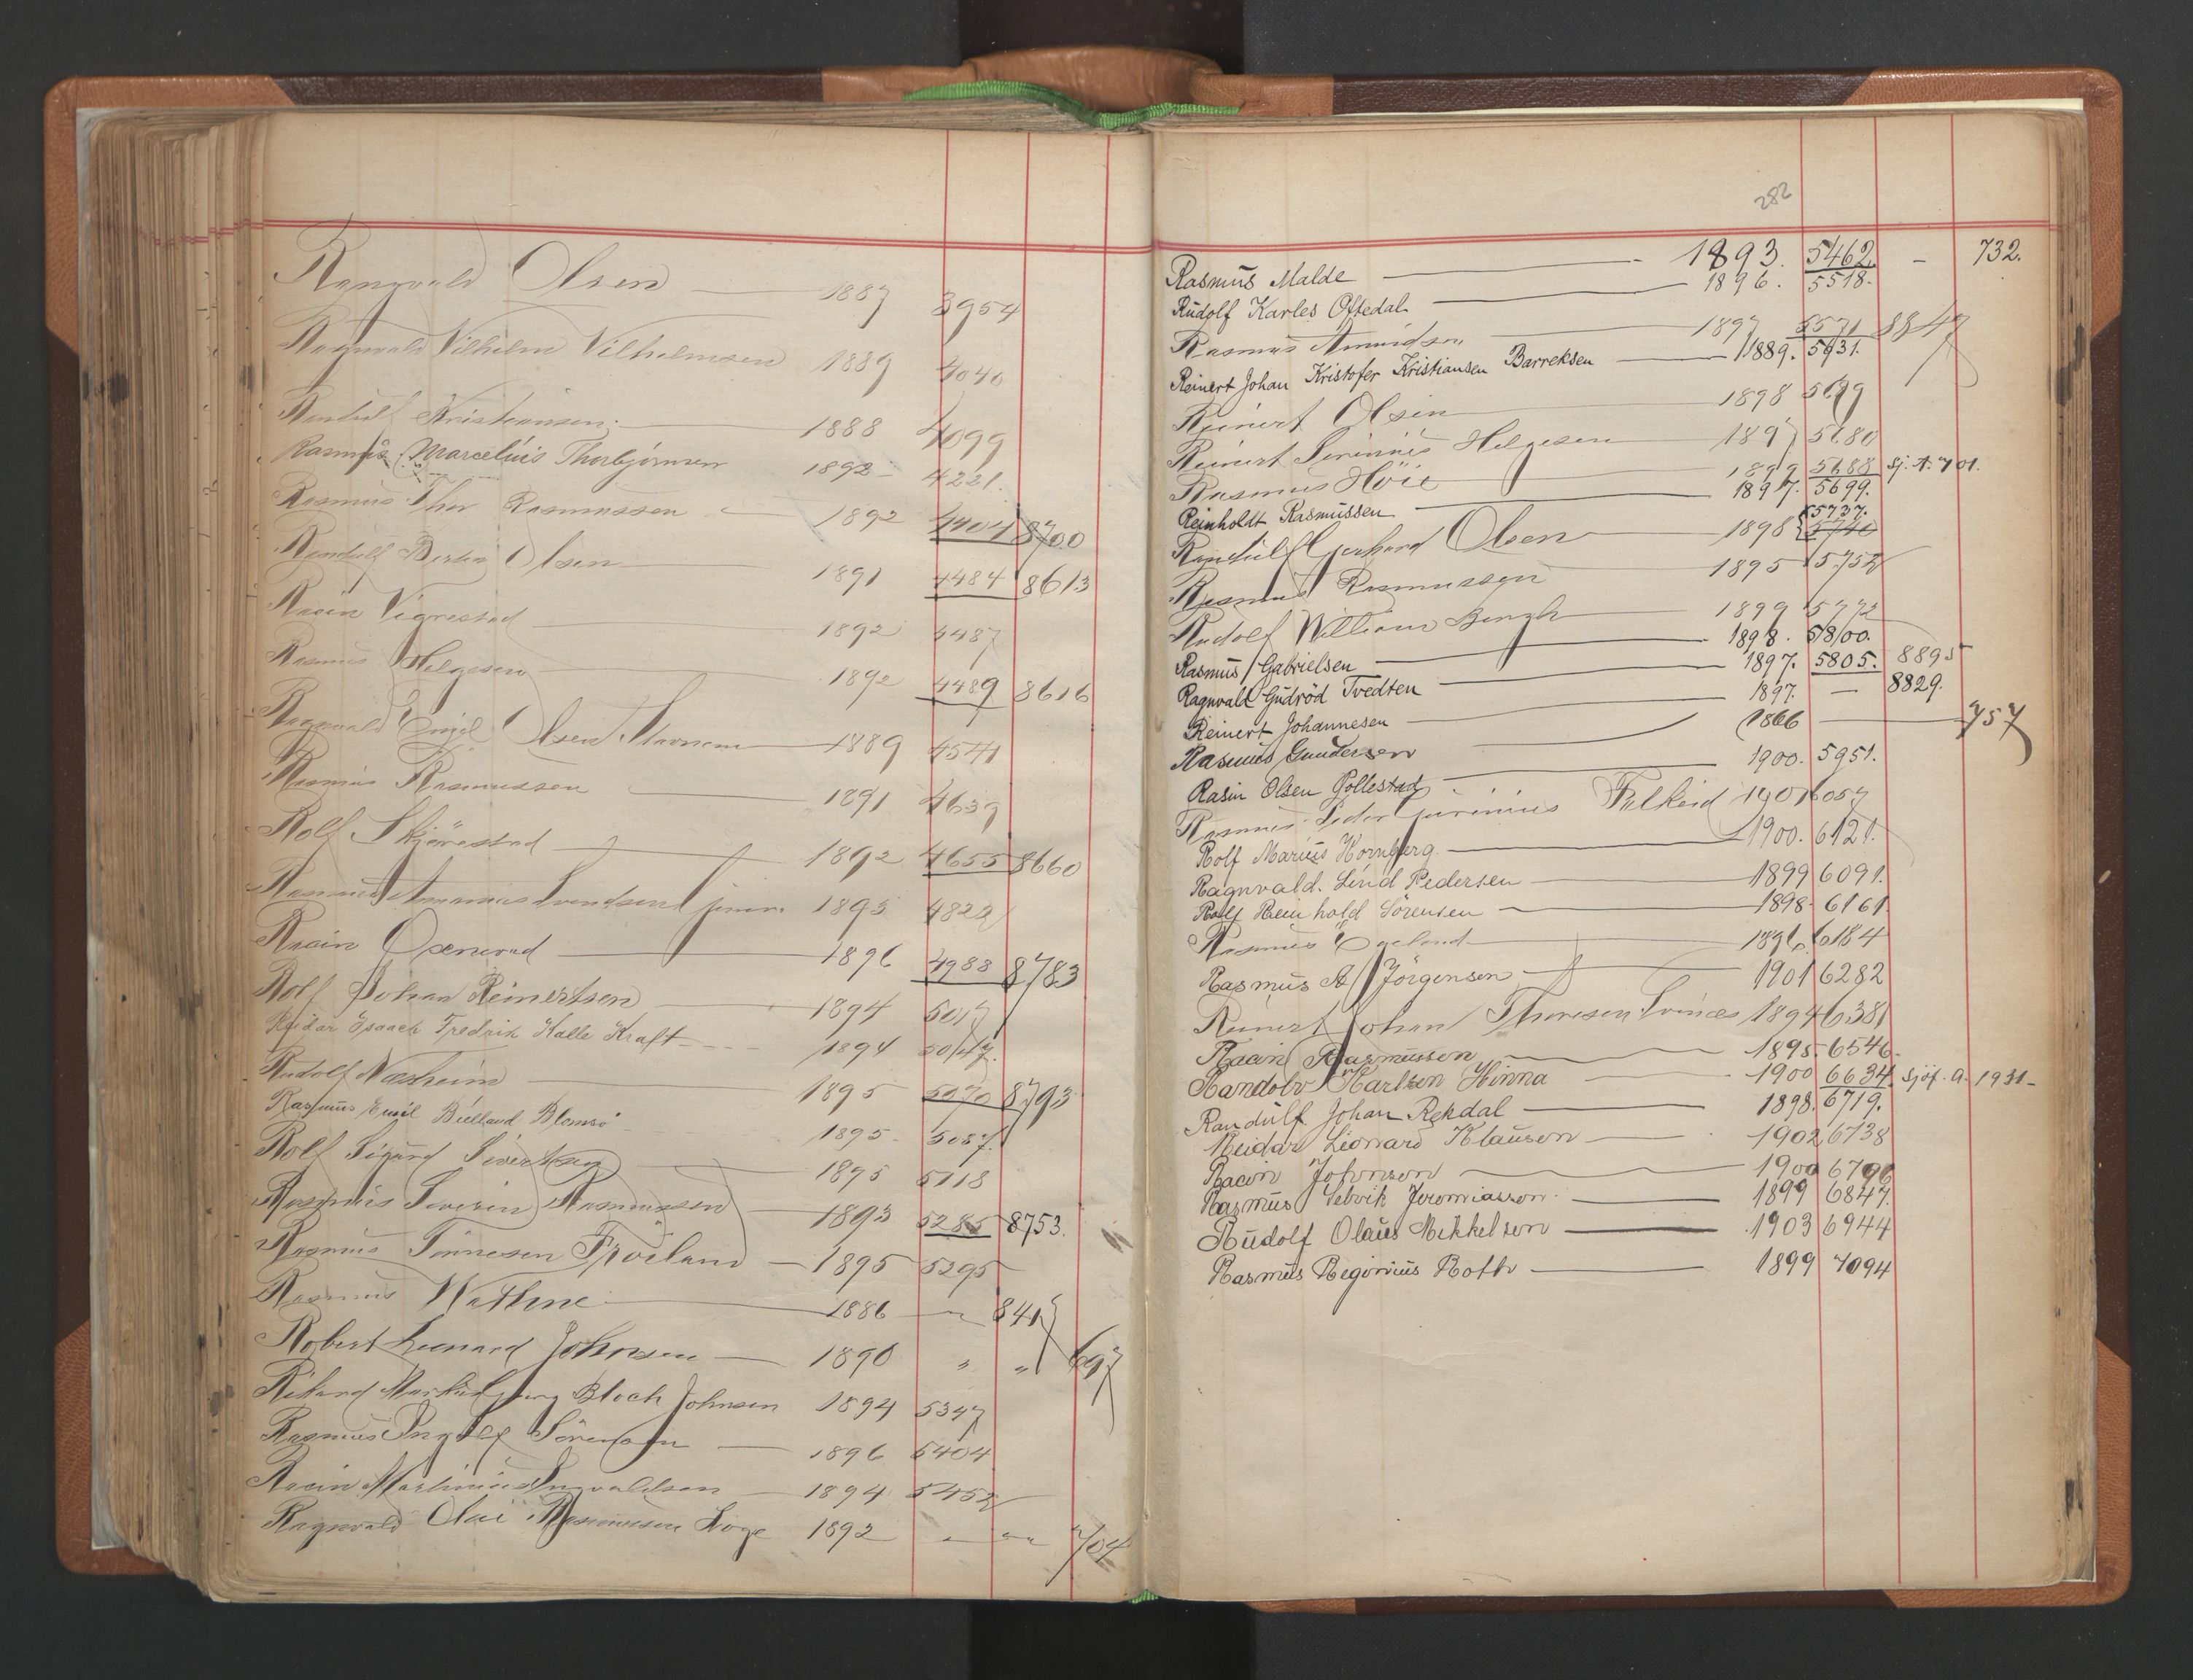 Rangvald Olsen 1887 3954
Ragnvald Vilhelm Vilhelmsen 1889 4040
Randulf Kristiansen 1888 4099
Rasmus Marcelius Thorbjörnsen 1892 4221.
Rasmus Thor Rasmussen 1892 4404 8700
Randulf Bertin Olsen 1891 4484 8613
Racin Vigrestad 1892 4487
Rasmus Helgesen 1892 4489 8616
Ragnvald Engel Olsen 1889 4541
Rasmus Rasmussen 1891 4639
Rolf Skjörestad 1892 4655 8660
Rasmus Svendsen junior 1895 4822
Racin 1896 4988 8783
Rolf Johan Reinertsen 1894 5017
Reidar Isaach Fredrik Kalle Kraft 1894 5047.
Rudolf Næsheim 1895 5070 8793
Rasmus Emil Blomsö 1895 5087.
Rolf Sigurd Sivertsen 1895 5118
Rasmus Severin Rasmussen 1893 5285 8753.
Rasmus Tönnesen Fröiland 1895 5295
Rasmus Wathne 1886 — 8417
Robert Leonard Johnsen 1890 " " 697
Rikard Bloch Johnsen 1894 5347
Rasmus Ingolf Sörensen 1896 5404
Racin Martinius Ingvaldsen 1894 5452
Ragnvald Olai Rasmussen Hoge 1892 " " 704
282
Rasmus Malde 1893. 5462. – 732.
Rudolf Karles Oftedal 1896. 5518.
Rasmus Amundsen 1897 5571 8847
Reinert Johan Kristofer Kristiansen Barreksen 1889. 5631.
Reinert Olsen 1898 5679
Reinert Severinus Helgesen 1897 5680
Rasmus Höie 1899 5688 Sj. A. 701.
Reinholdt Rasmussen 1897. 5699.
5737.
Randulf Gerhard Olsen 1898 5740
Rasmus Rasmussen 1895 5752
Rudolf William Bengh 1899 5772
Rasmus Gabrielsen 1898. 5800.
Ragnvald Gudröd Tvedten 1897. 5805. 8895
Reinert Johannesen 1897. — 8829.
Rasmus Gundersen 1866 757
Rasin Olsen Gollestad 1900. 5951.
Rasmus Peder 1901 6057
Rolf Marius Kornberg 1900. 6121.
Ragnvald. Lind Pedersen 1899 6091.
Rolf Reinhold Sörensen 1898. 6161.
Rasmus 1896 6184
Rasmus A Jörgensen 1901 6282
Reinert Johan Thoresen 1894 6381
Racin Rasmussen 1895. 6546.
Randolv Karlsen Hinna 1900 6634. Sjöf. A. 1931–
Randulf Johan Rekdal 1898. 6719.
Reidar Lionard Klausen 1902 6738
Racin Johnson 1900 6796
Rasmus Sebvik Jeremiassen 1899 6847.
Rudolf Olaus Mikkelsen 1903 6944
Rasmus Regonius Roth 1899 7094